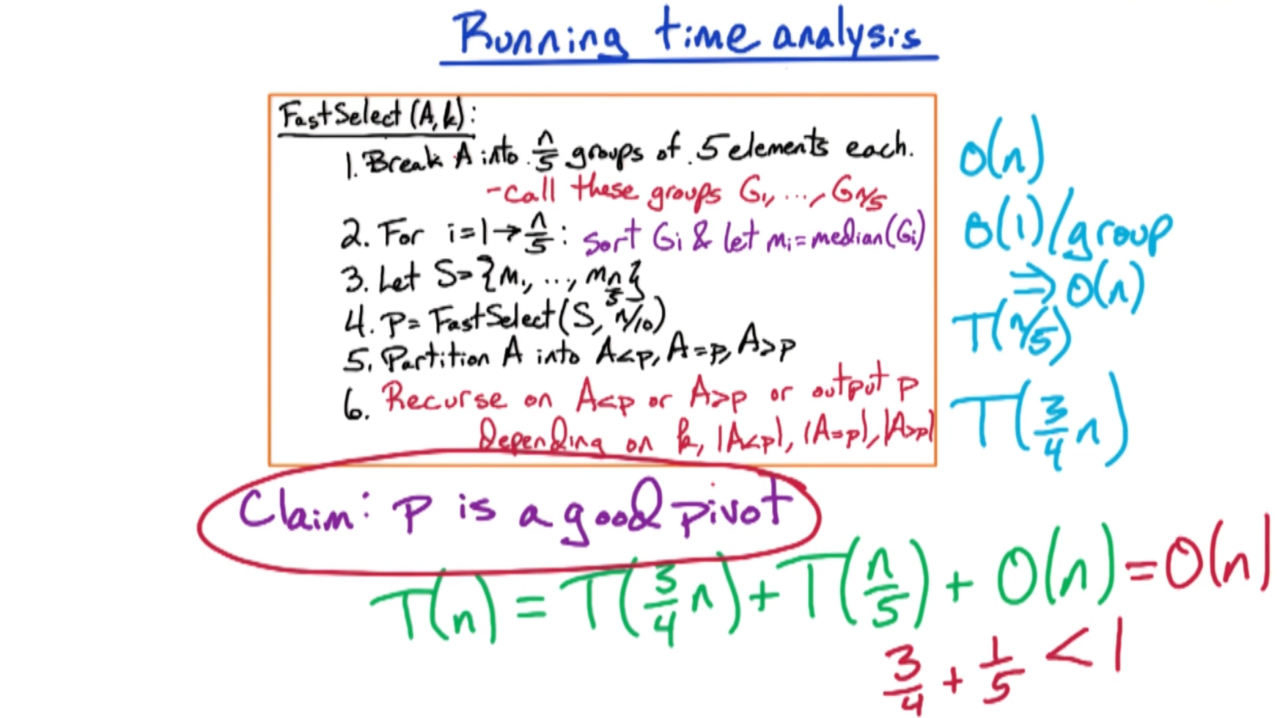 Running time analysis
FastSelect(A,k):
1. Break A into n/5 groups of 5 elements each.
O(n)
-call these groups G₁, ..., Gn/5
2. For i=1→n/5: sort Gi & let mi=median(Gi)
O(1)/group
⇒ O(n)
3. Let S={m₁, ..., mn/5}
4. P= FastSelect(S, n/10)
T(n/5)
5. Partition A into A<p, A=p, A>p
6. Recurse on A<p or A>p or output p
depending on k, |A<p|, |A=p|, |A>p|
T(3/4 n)
Claim: P is a good pivot
T(n) = T(3/4 n) + T(n/5) + O(n) = O(n)
3/4 + 1/5 < 1